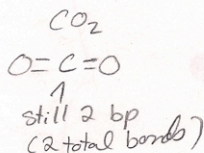 CO₂
O=C=O
↑
still 2 bp
(2 total bonds)